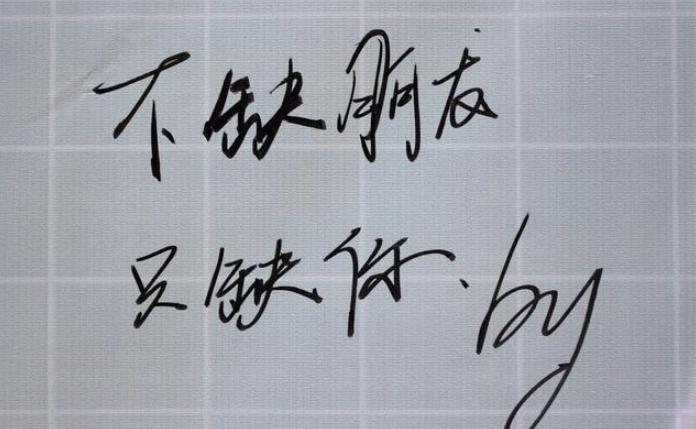 不缺朋友
只缺你、by